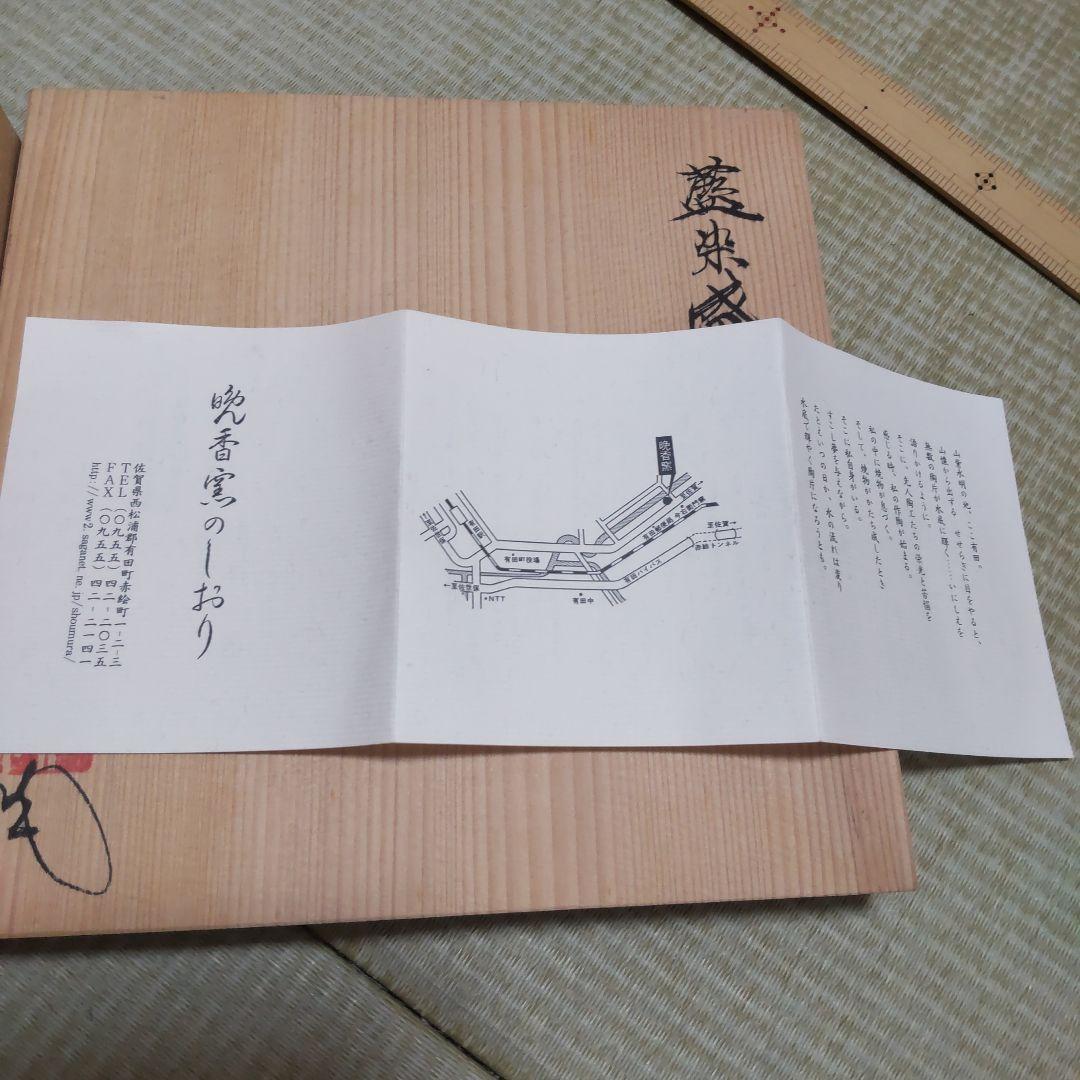 藍染盛
山紫水明の地、ここ有田。
山陰から出する せせらぎに目をやると、
無数の陶片が水底に輝く……いにしえを
語りかけるように。
そこに、先人陶工たちの栄光と苦悩を
感じる時、私の作陶が始まる。
私の中に焼物が息づく。
そして、焼物がかたち成したとき
そこに私自身がいる。
すこし夢を与えながら。
たとえいつの日か、水の流れは変り
水底で輝やく陶片になろうとも。
晩香窯
至佐賀→
今右衛門窯
有田郵便局
至佐賀→
赤絵トンネル
有田駅
有田町役場
有田バイパス
←至佐世保
NTT
有田中
晩香窯のしおり
佐賀県西松浦郡有田町赤絵町一-二-三
TEL(〇九五五)四二-二〇三五
FAX(〇九五五)四二-二一四一
http://www2.saganet.ne.jp/shoumura/